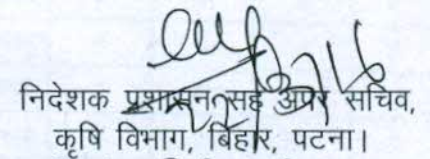 निदेशक प्रशासन-सह अपर सचिव,
कृषि विभाग, बिहार, पटना।